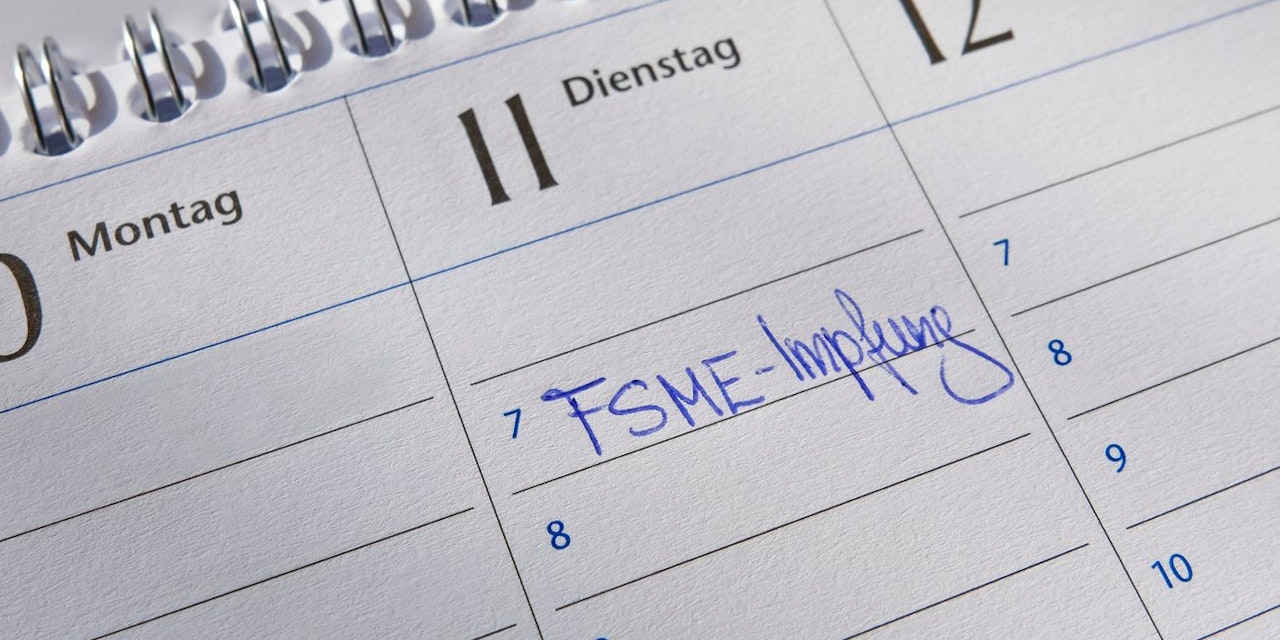 Montag
11 Dienstag
12
7 FSME-Impfung
8
7
8
9
10